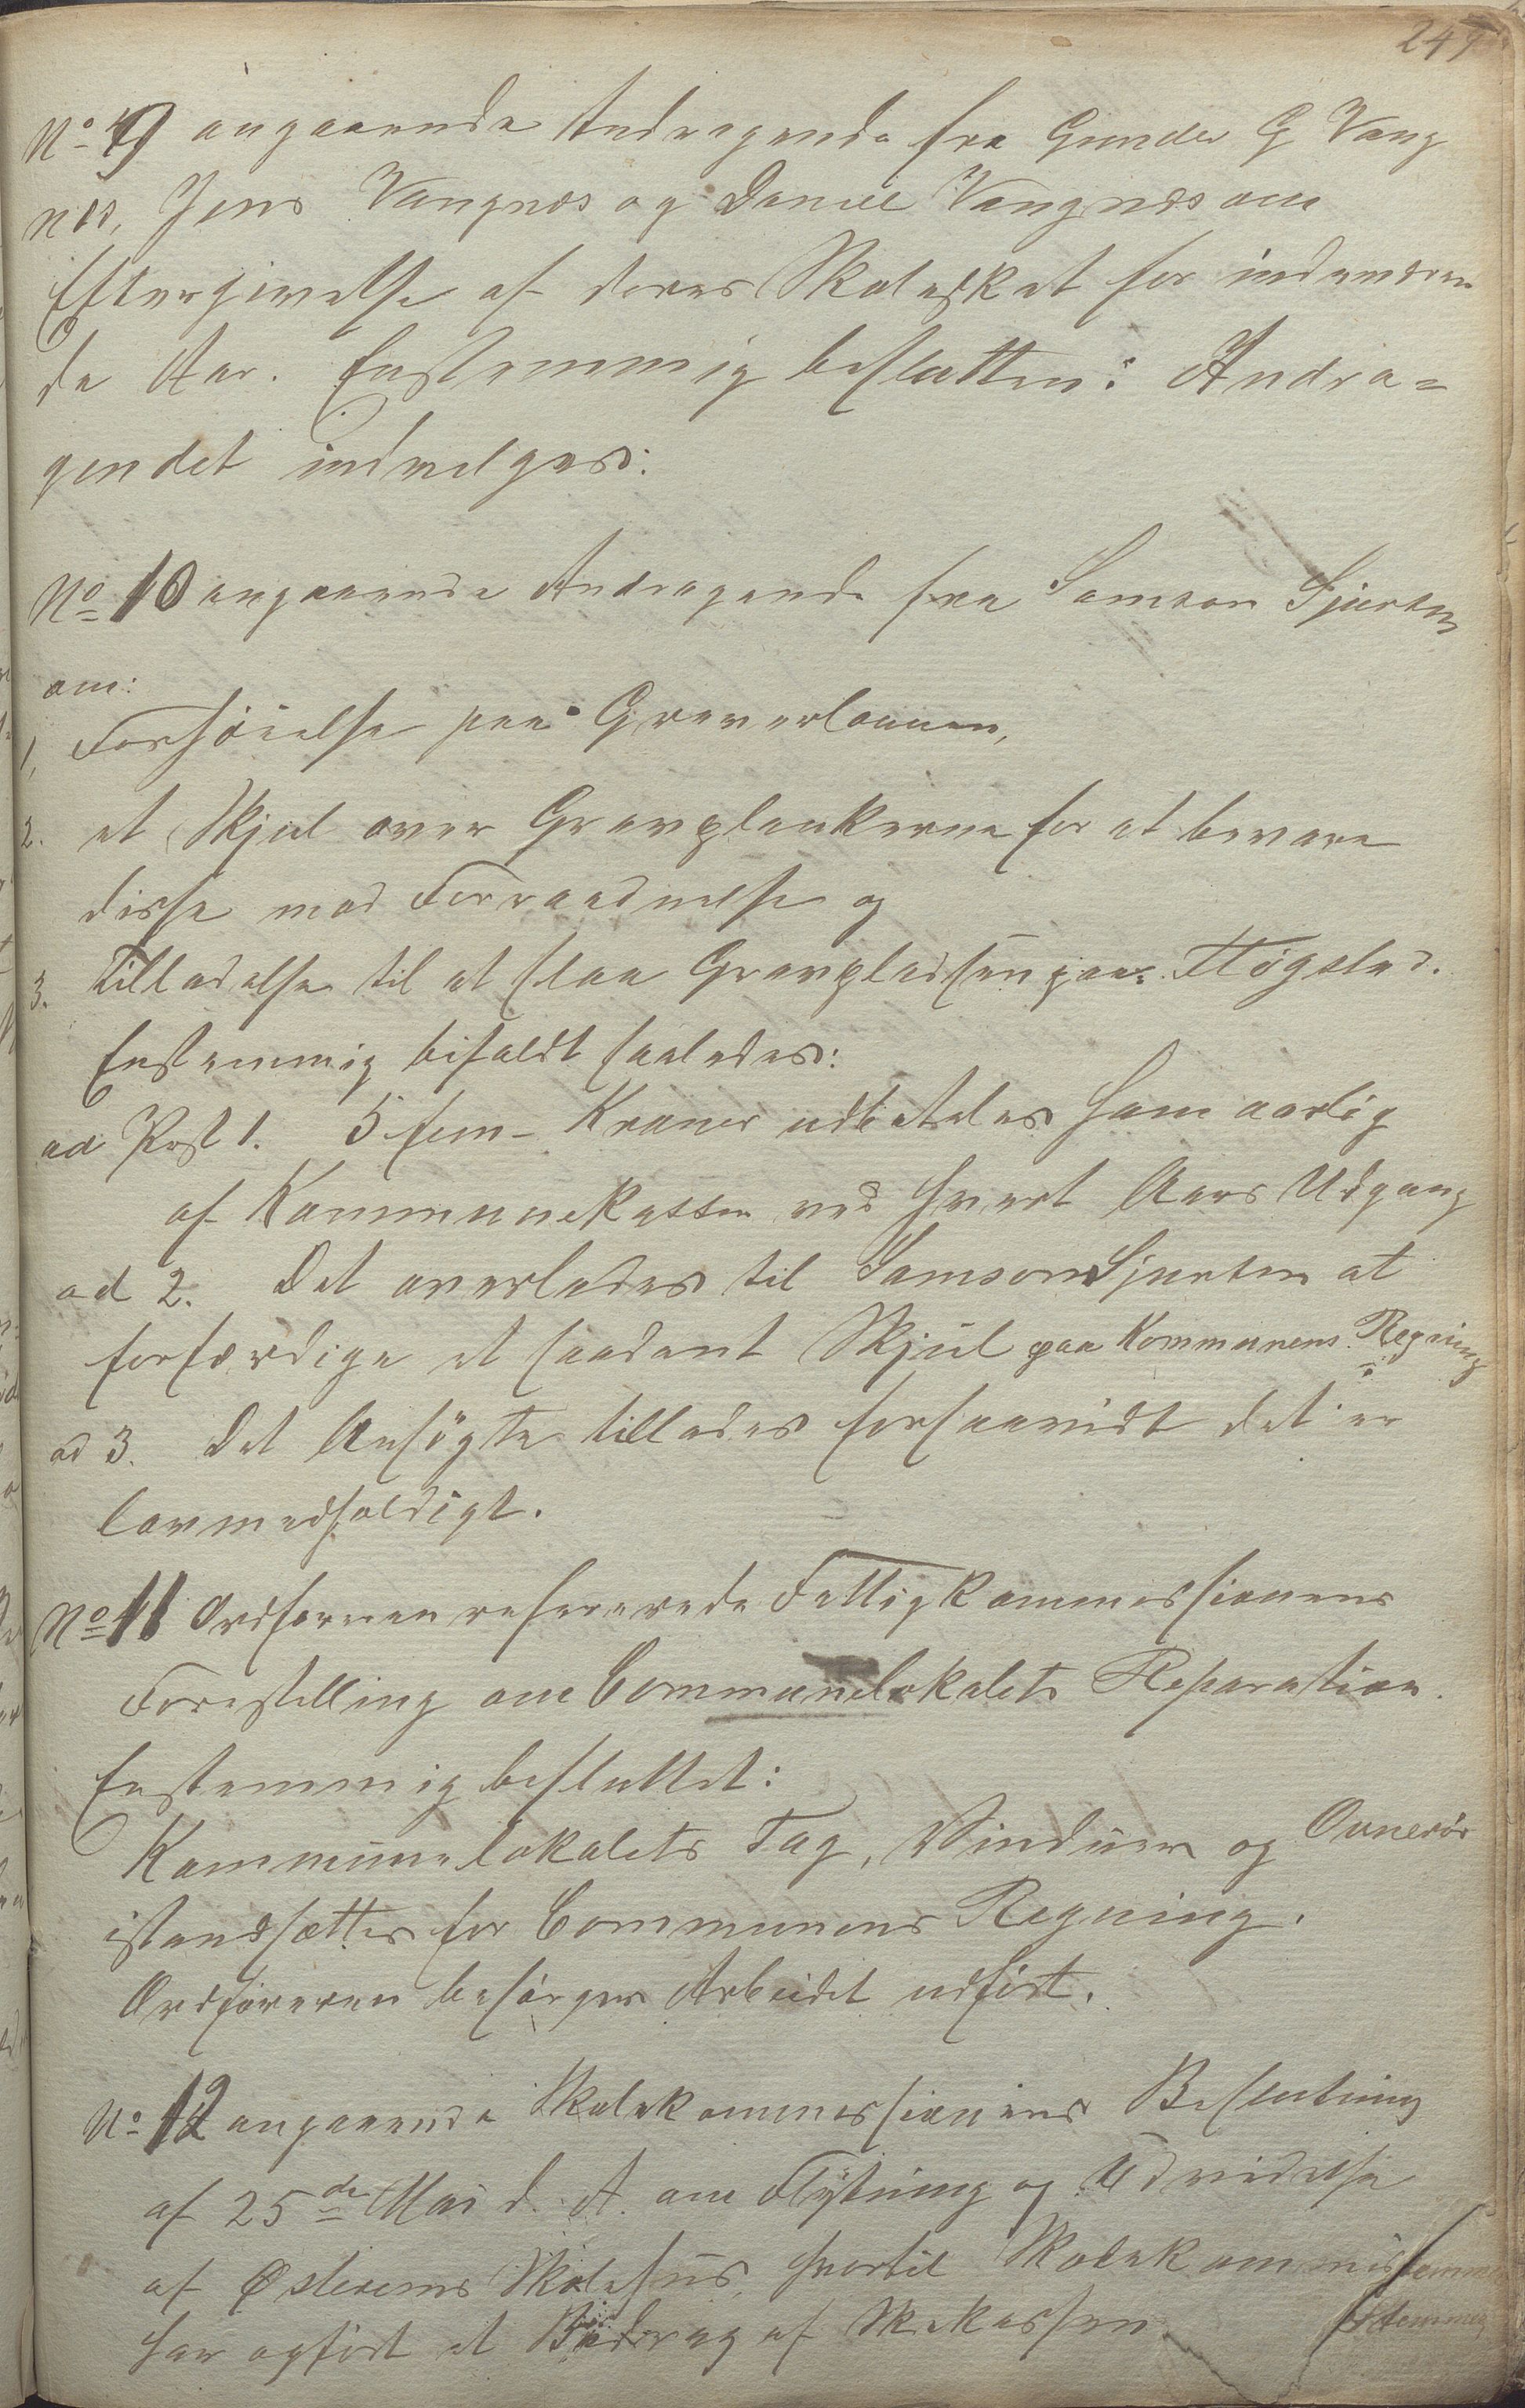 249
No 9 angaaende Andragende fra Gunder G Vang
nes, Jens Vangnes og Daniel Vangnes om
Eftergivelse af deres Skoleskat for indeværen
de Aar. Enstemmig beslutten: Andra=
gendet indvilges:
No 10 angaaende Andragende fra Samson Sjursen
om:
1, Forhöielse paa Graverlönnen,
2. et Skjul over Gravplankerne for at bevare
disse mod Forraadnelse og
3. Tilladelse til at slaa Gravpladsen paa
Enstemmig bifaldt saaledes:
ad Post 1. 5 fem - Kroner udbetales ham aarlig
af Kommunekassen ved hvert Aars Udgang
ad 2. Det overlades til Samson Sjursen at
forfærdige et saadant Skjul paa Kommunens Regning
ad 3. Det Ansögte tillades forsaavidt det er
lovmedholdigt.
No 11 Ordföreren refererede Fattigkommissionens
Forestilling om Communelokalets Reparation.
Enstemmig besluttet:
Kommunelokalets Tag, Vinduer og Ovnerör
istandsættes for Communens Regning.
Ordföreren besörger Arbeidet udfört.
No 12 angaaende Skolekommissionens Beslutning
af 25de Mai d. A. om Flytning og Udvidelse
af Österems Skolehus, hvortil Skolekommissionen
har opfört et Bidrag af Skolekassen